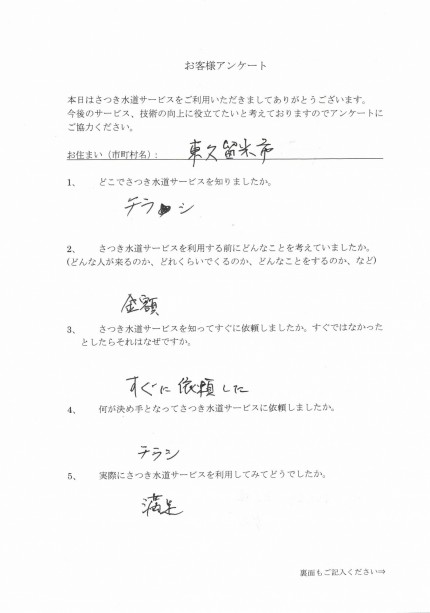 お客様アンケート
本日はさつき水道サービスをご利用いただきましてありがとうございます。
今後のサービス、技術の向上に役立てたいと考えておりますのでアンケートに
ご協力ください。
お住まい（市町村名）： 東久留米市
1、 どこでさつき水道サービスを知りましたか。
チラシ
2、 さつき水道サービスを利用する前にどんなことを考えていましたか。
(どんな人が来るのか、どれくらいでくるのか、どんなことをするのか、など)
金額
3、 さつき水道サービスを知ってすぐに依頼しましたか。すぐではなかった
としたらそれはなぜですか。
すぐに依頼した
4、 何が決め手となってさつき水道サービスに依頼しましたか。
チラシ
5、 実際にさつき水道サービスを利用してみてどうでしたか。
満足
裏面もご記入ください⇒